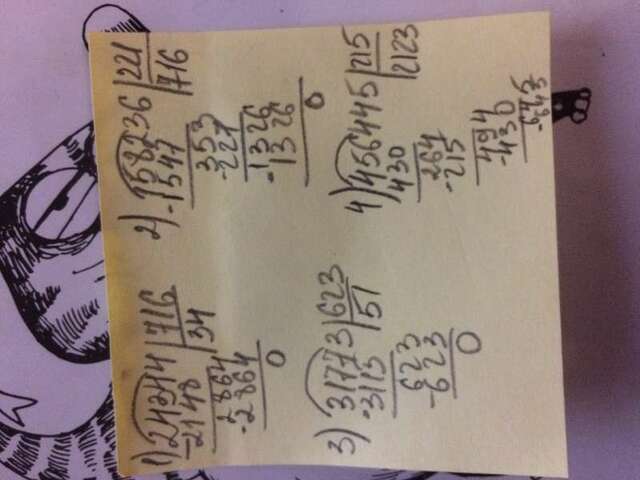 1) 24344 | 716
-2148 | 34
2864
-2864
0
2) 158236 | 221
-1547 | 716
353
-221
1326
-1326
0
3) 31773 | 623
-3115 | 51
623
-623
0
4) 456445 | 215
430 | 2123
264
-215
494
-430
645
-645